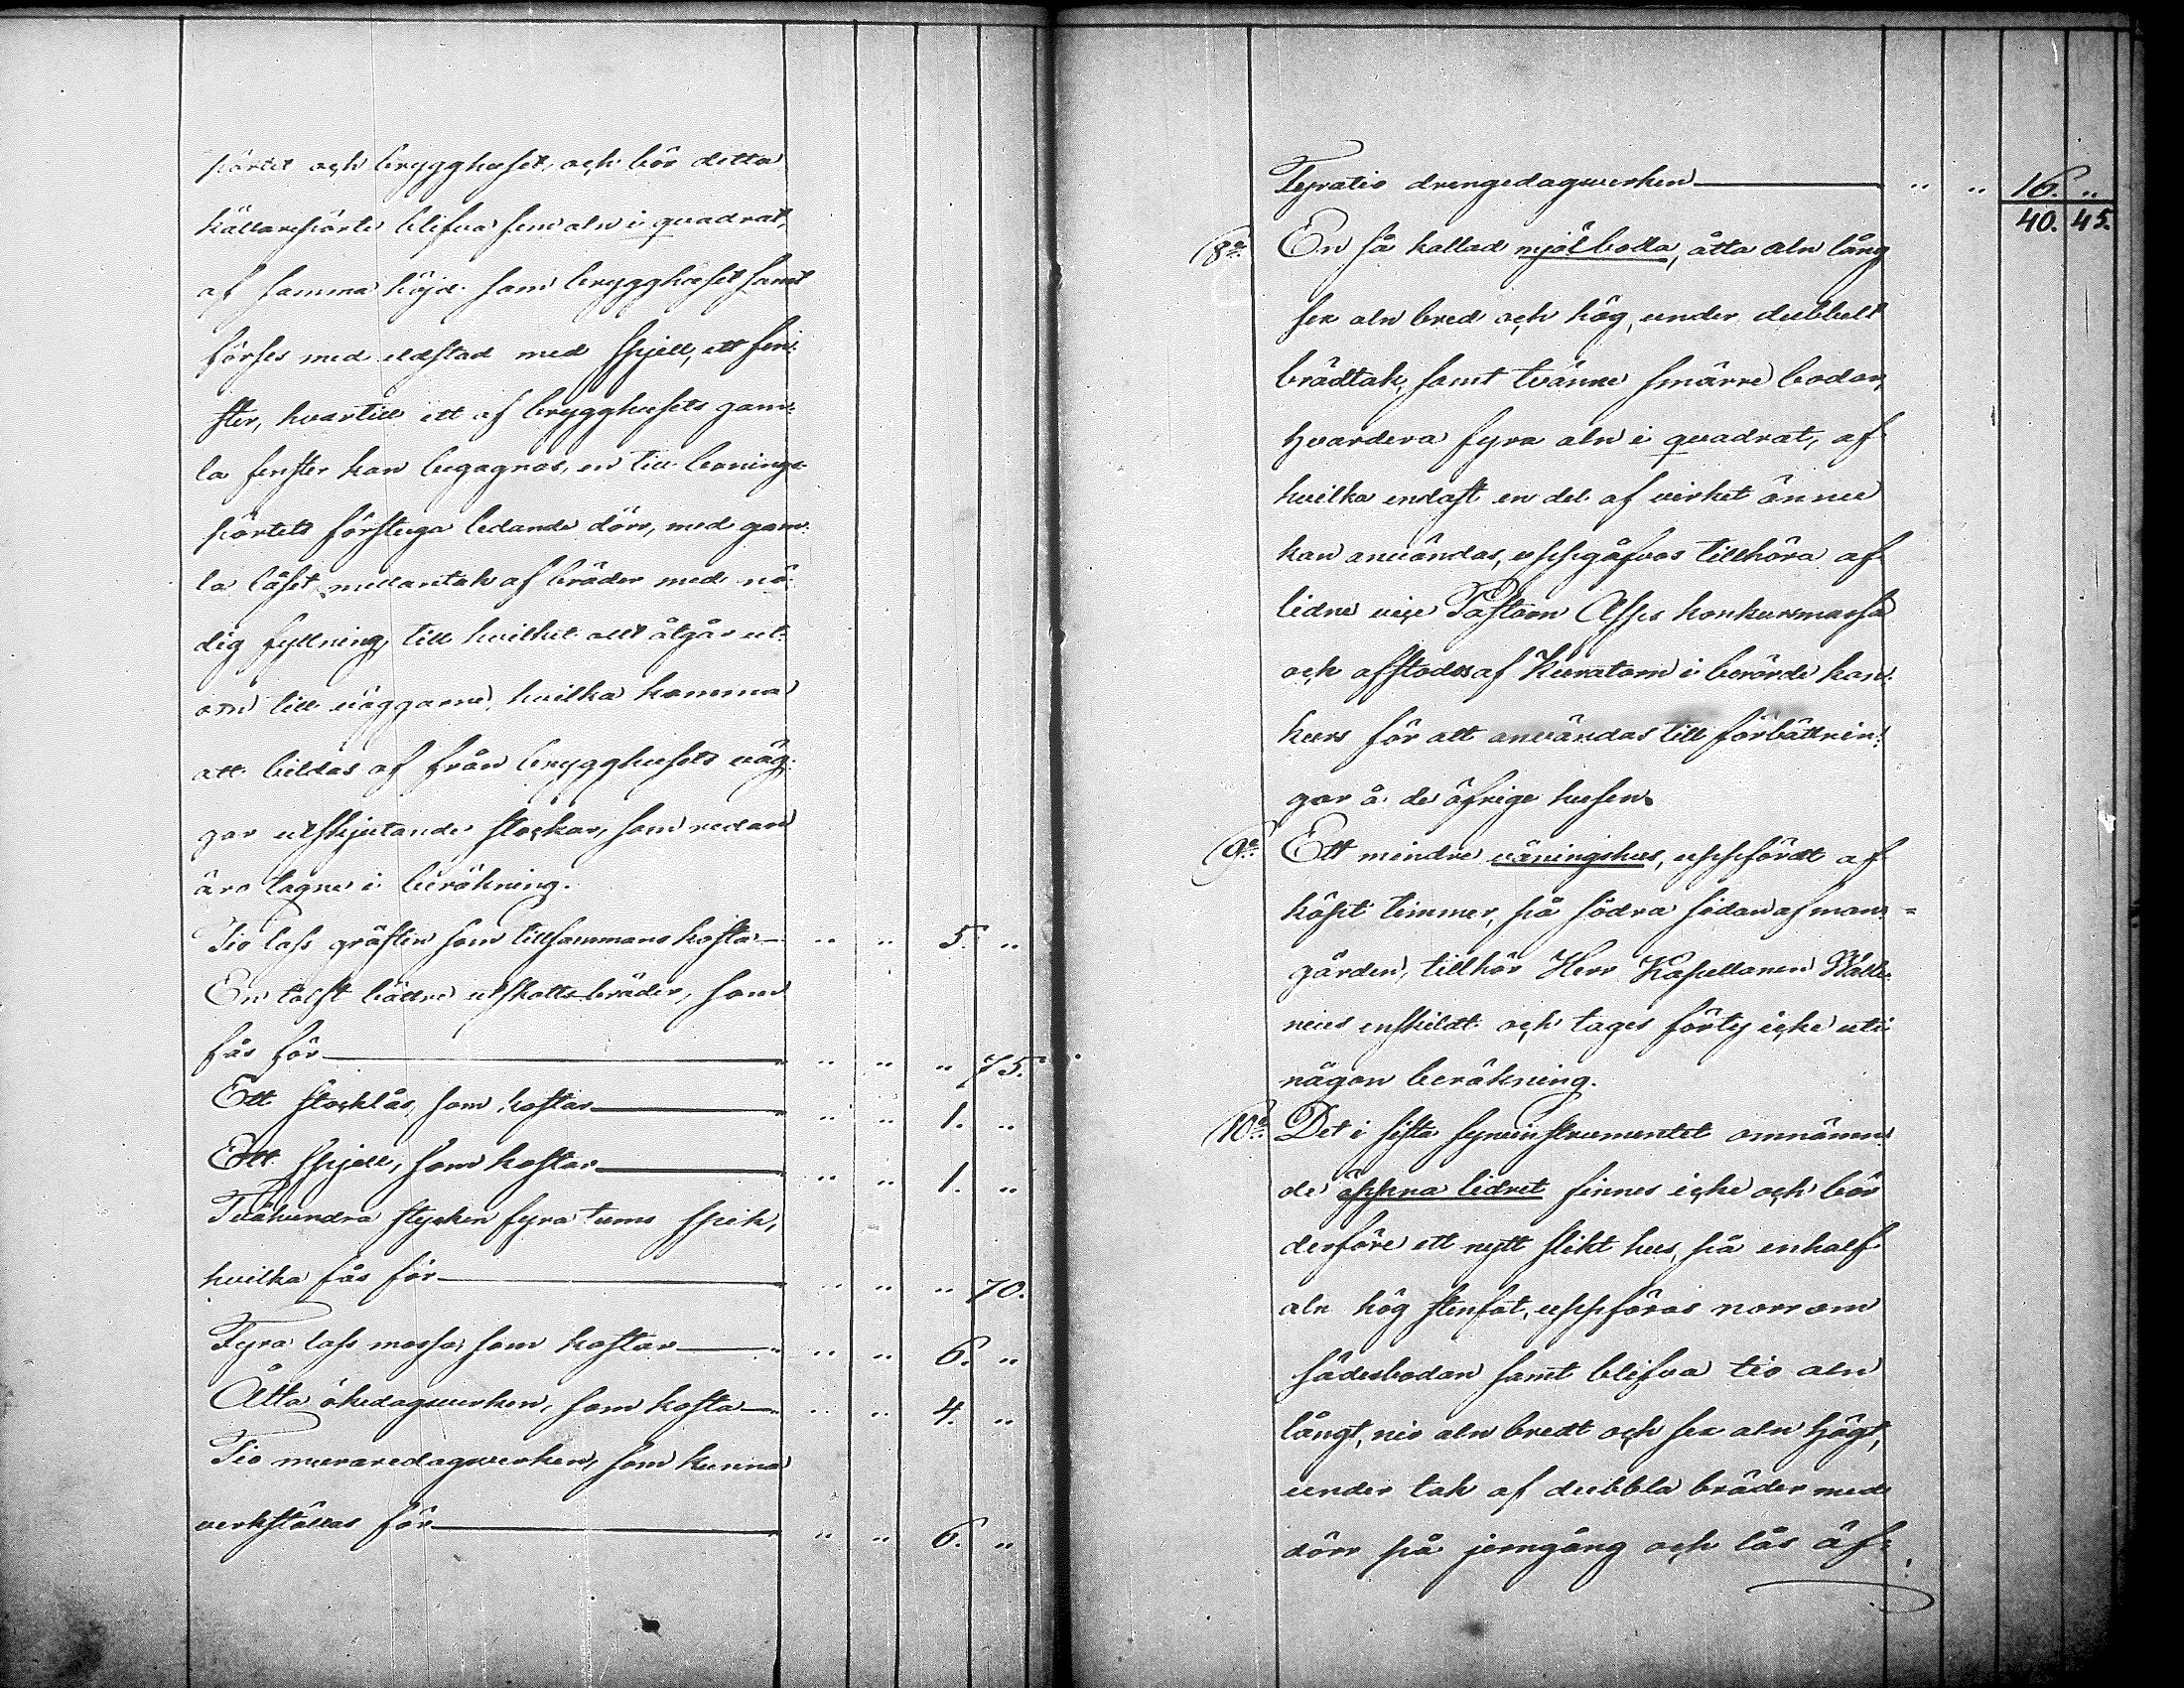 pörtet och brygghuset, och bör detta
källarepörte blifva fem aln i quadrat,
af samma höjd som brygghuset samt
förses med eldstad med spjell, ett fen-
ster, hvartill ett af brygghusets gam-
la fenster kan begagnas, en till bonings-
pörtets förstuga ledande dörr, med gam-
la låset, mellantak af bräder med nö-
dig fyllning, till hvilket allt åtgår ut-
om till väggarne, hvilka komma
att bildas af från brygghusets väg-
gar utskjutande stockar, som redan
äro tagne i beräkning.
Tio lass gråsten som tillsammans kosta — .. .. 5. ..
En tolft bättre utskotts bräder, som
fås för — .. .. .. 75.
Ett stocklås, som kostar — .. .. 1. ..
Ett spjell, som kostar — .. .. 1. ..
Tvåhundra stycken fyra tums spik,
hvilka fås för — .. .. .. 70.
Fyra lass mossa, som kostar — .. .. 6. ..
Åtta ökedagsverken, som kosta — .. .. 4. ..
Tio muraredagsverken, som kunna
verkställas för — .. .. 6. ..
Fyratio drengedagsverken — .. .. 16. ..
40. 45.
8o En så kallad mjölboda, åtta aln lång
sex aln bred och hög, under dubbelt
brädtak, samt tvänne smärre bodar,
hvardera fyra aln i quadrat, af
hvilka endast en del af virket ännu
kan användas, uppgåfvos tillhöra af-
lidne vice Pastorn Alfs konkursmassa
och afstodos af Kuratorn i berörde kon-
kurs för att användas till förbättrin-
gar å de öfrige husen.
9o Ett mindre våningshus, uppfördt af
köpt timmer, på södra sidan af man-
gården, tillhör Herr Kapellanen
enskildt och tages förty icke uti
någon beräkning.
10o Det i sista syneinstrumentet omnämn-
de öppna lidret finnes icke och bör
derföre ett nytt slikt hus, på en half
aln hög stenfot, uppföras norrom
sädesbodan samt blifva tio aln
långt, nio aln bredt och sex aln högt,
under tak af dubbla bräder med
dörr på jerngång och lås äf-